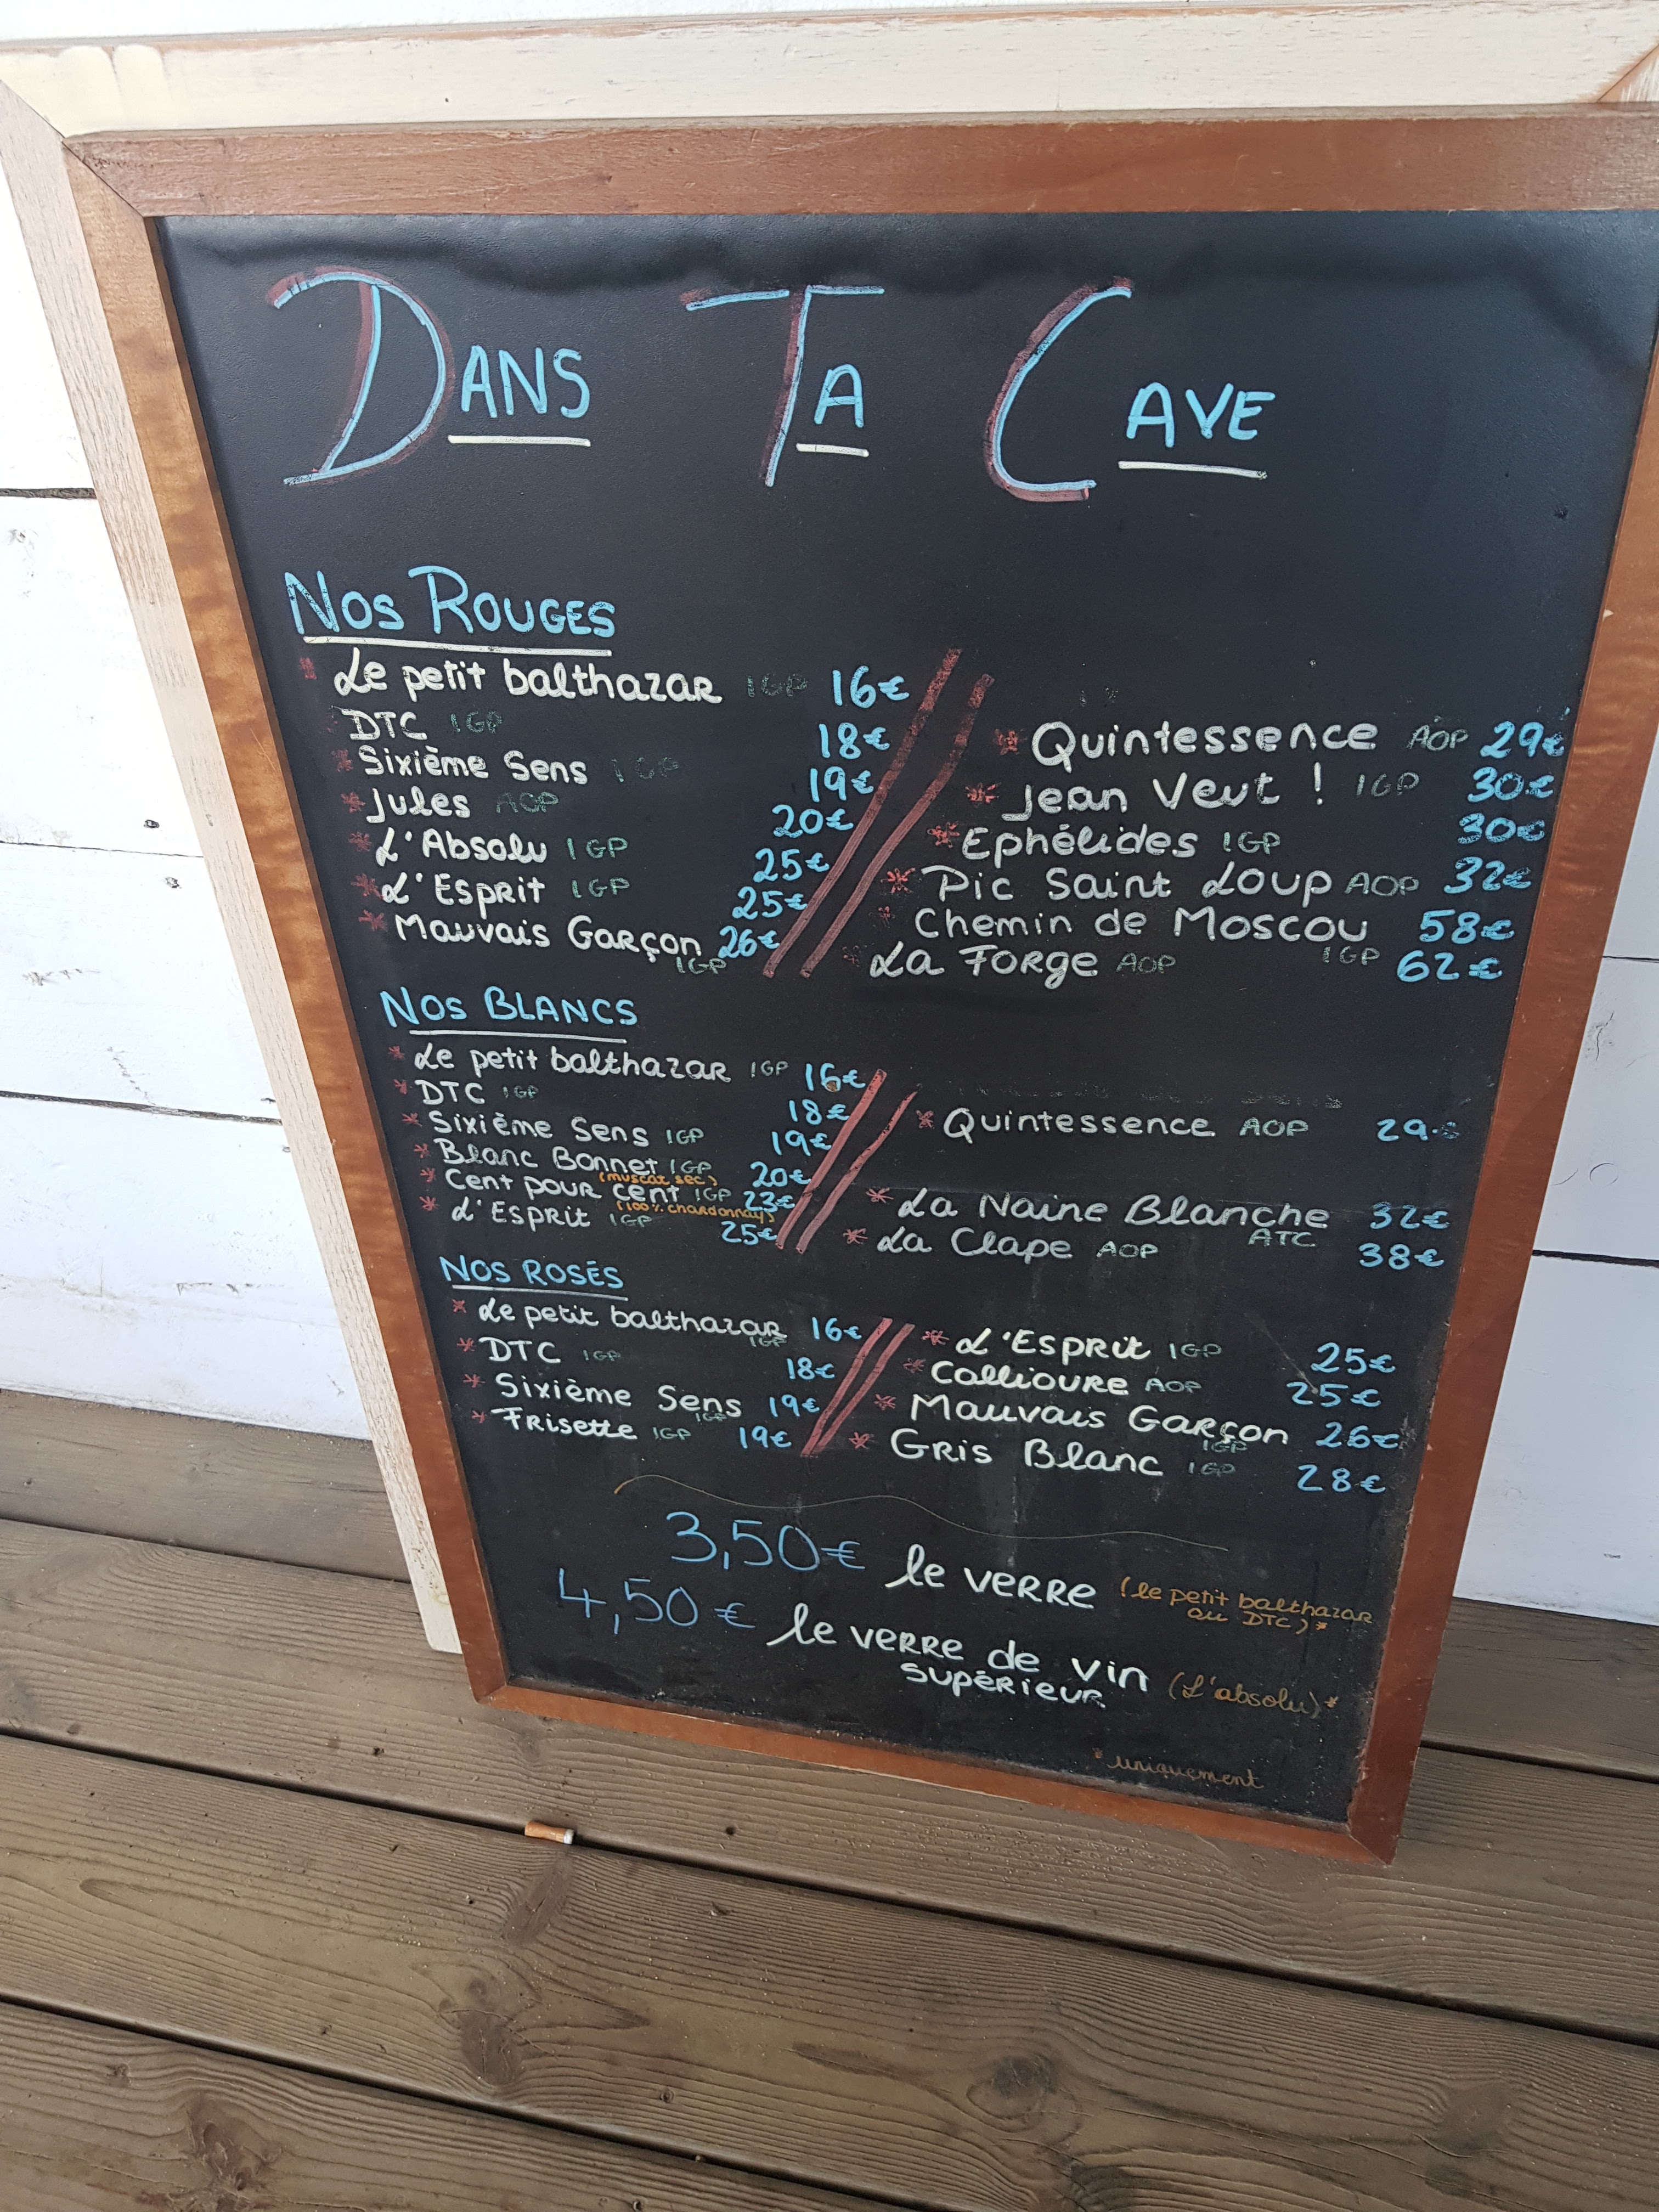 DANS TA CAVE
NOS ROUGES
* Le petit balthazar IGP 16€
DTC IGP 18€
* Sixième Sens IGP 19€
* Jules AOP 20€
* L'Absolu IGP 25€
* L'Esprit IGP 25€
* Mauvais Garçon 26€
IGP
* Quintessence AOP 29€
* Jean Veut ! IGP 30€
* Ephélides IGP 30€
* Pic Saint Loup AOP 32€
* Chemin de Moscou 58€
IGP
* La Forge AOP 62€
NOS BLANCS
* Le petit balthazar IGP 16€
* DTC IGP 18€
* Sixième Sens IGP 19€
* Blanc Bonnet IGP 20€
(muscat sec)
* Cent pour cent IGP 23€
(100% chardonnay)
* L'Esprit IGP 25€
* Quintessence AOP 29€
* La Naine Blanche 32€
ATC
* La Clape AOP 38€
NOS ROSÉS
* Le petit balthazar 16€
IGP
* DTC IGP 18€
* Sixième Sens 19€
IGP
* Frisette IGP 19€
* L'Esprit IGP 25€
* Collioure AOP 25€
* Mauvais Garçon 26€
IGP
* Gris Blanc IGP 28€
3,50€ le verre (le petit balthazar
ou DTC)*
4,50€ le verre de vin (L'absolu)*
supérieur
* uniquement